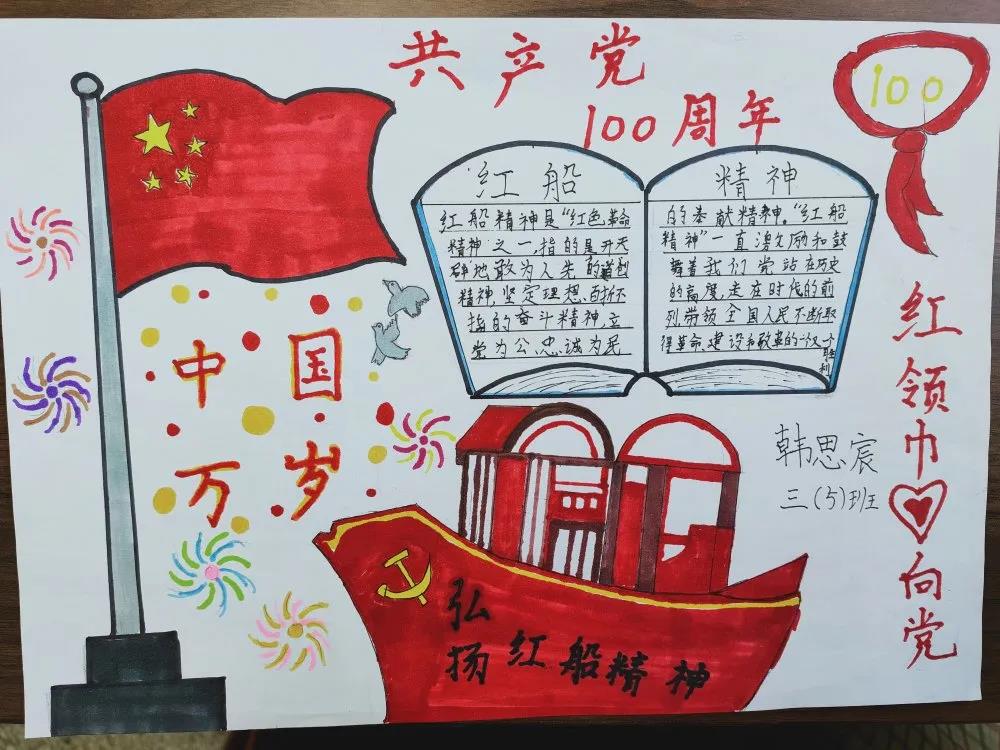 共产党
100周年
100
红船
红船精神是“红色革命
精神”之一,指的是开天
辟地敢为人先的首创
精神,坚定理想、百折不
挠的奋斗精神,立
党为公、忠诚为民
精神
的奉献精神。“红船
精神”一直激励和鼓
舞着我们党站在历史
的高度,走在时代的前
列,带领全国人民不断取
得革命、建设和改革的一次个
胜利
中国
万岁
红领巾
向党
韩思宸
三(5)班
弘
扬红船精神